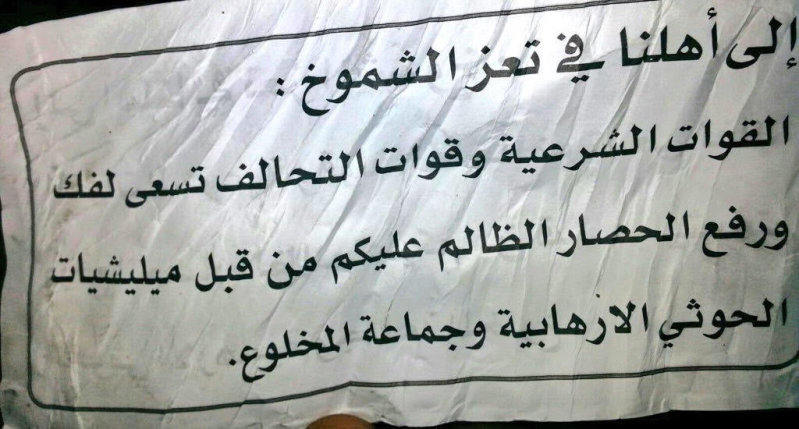 إلى أهلنا في تعز الشموخ :
القوات الشرعية وقوات التحالف تسعى لفك
ورفع الحصار الظالم عليكم من قبل ميليشيات
الحوثي الارهابية وجماعة المخلوع.